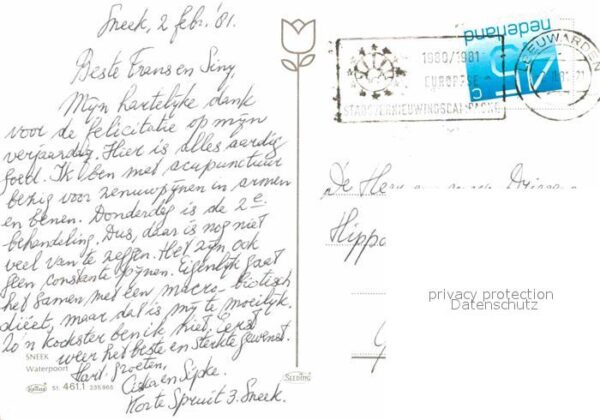 Sneek, 2 febr. '81.
Beste Frans en Siny,
Mijn hartelijke dank
voor de felicitatie op mijn
verjaardag. Hier is alles aardig
goed. Ik ben met acupunctuur
bezig voor zenuwpijnen in armen
en benen. Donderdag is de 2e
behandeling. Dus, daar is nog niet
veel van te zeggen. Het zijn ook
geen constante pijnen. Eigenlijk gaat
het samen met een macro-biotisch
dieët, maar dat is mij te moeilijk.
Zo'n kookster ben ik niet. Eerst
weer het beste en sterkte gewenst.
Hart. groeten,
en Sipke.
Korte Spruit 3. Sneek.
SNEEK
Waterpoort
st. 461.1
SLEDING
1980/1981
EUROPESE
STADSVERNIEUWINGSCAMPAGNE
LEEUWARDEN
nederland
45 c
De Heer
Hippo
privacy protection
Datenschutz